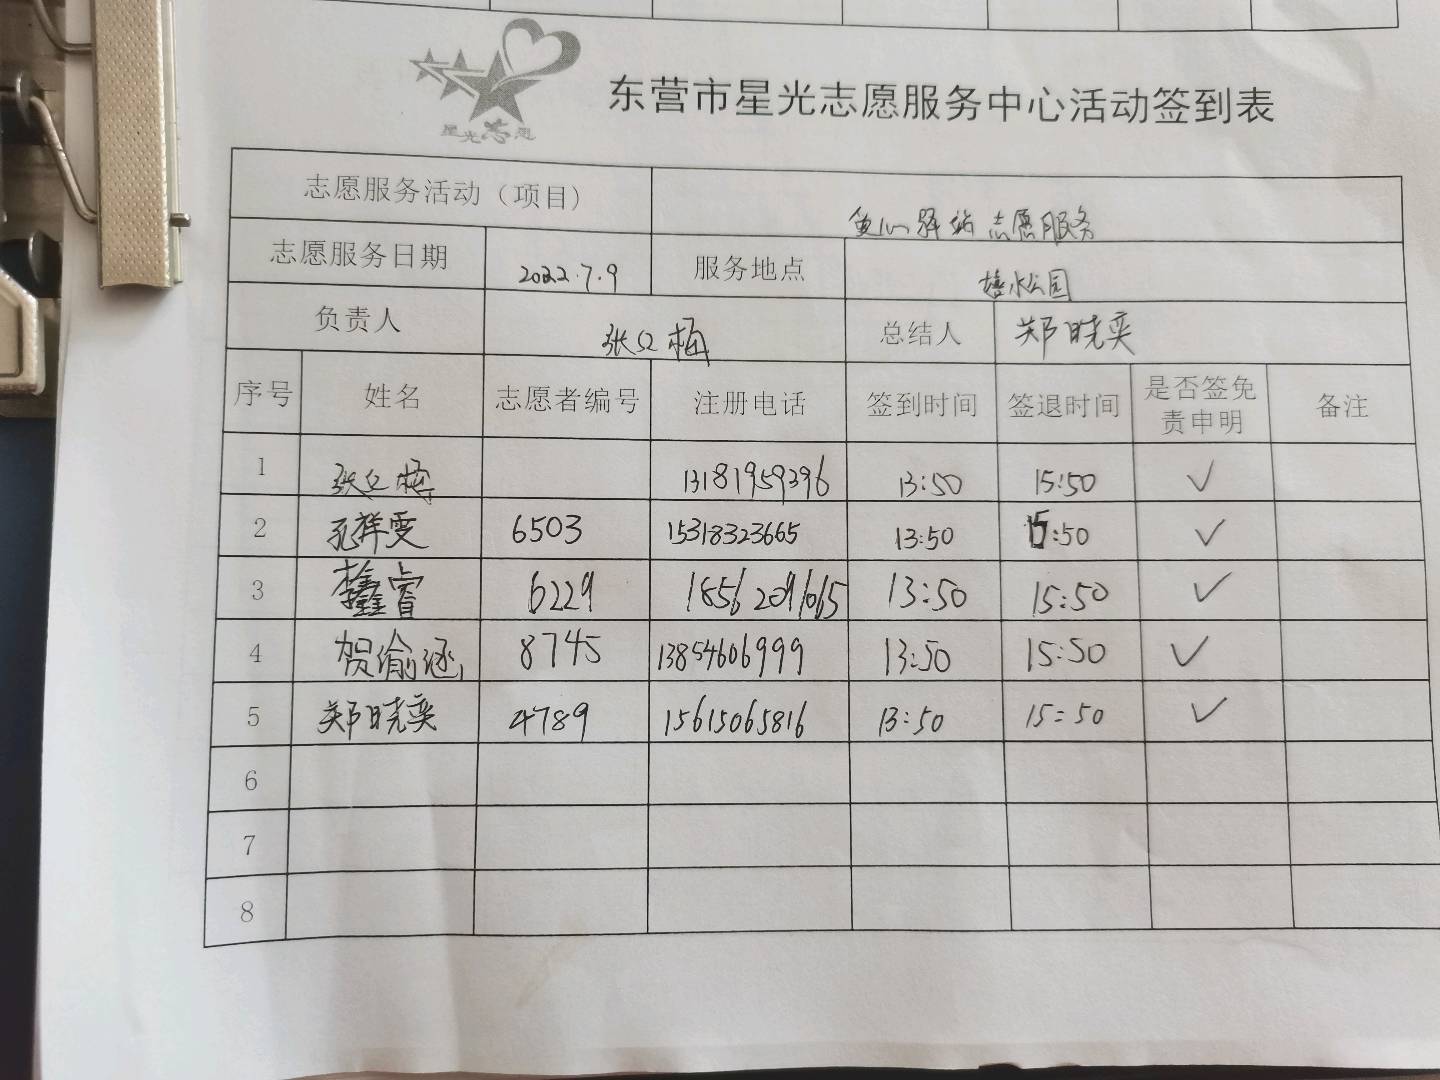 星光志愿
东营市星光志愿服务中心活动签到表
志愿服务活动（项目） 爱心驿站志愿服务
志愿服务日期 2022.7.9 服务地点 公园
负责人 张 梅 总结人 郑晓奕
序号 姓名 志愿者编号 注册电话 签到时间 签退时间 是否签免责申明 备注
1 张 梅 13181959396 13:50 15:50 ✓
2 孔祥雯 6503 15318323665 13:50 15:50 ✓
3 鑫睿 6229 18562091065 13:50 15:50 ✓
4 贺偷涵 8745 13854606999 13:50 15:50 ✓
5 郑晓奕 4789 15615065816 13:50 15:50 ✓
6
7
8